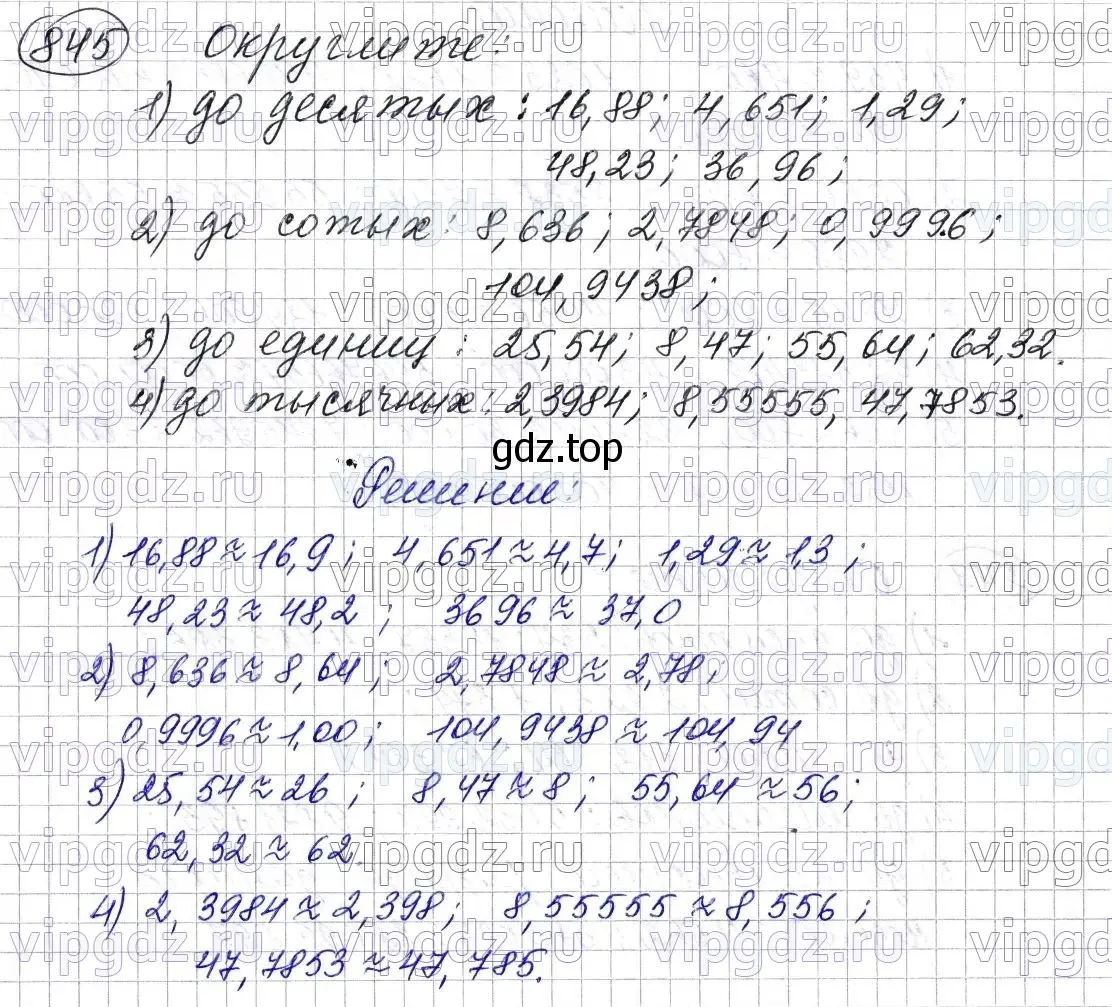 845 Округлите:
1) до десятых: 16,88; 4,651; 1,29;
48,23; 36,96;
2) до сотых: 8,636; 2,7848; 0,9996;
104,9438;
3) до единиц: 25,54; 8,47; 55,64; 62,32.
4) до тысячных: 2,3984; 8,55555, 47,7853.
gdz.top
Решение:
1) 16,88 ≈ 16,9; 4,651 ≈ 4,7; 1,29 ≈ 1,3;
48,23 ≈ 48,2; 3696 ≈ 37,0
2) 8,636 ≈ 8,64; 2,7848 ≈ 2,78;
0,9996 ≈ 1,00; 104,9438 ≈ 104,94
3) 25,54 ≈ 26; 8,47 ≈ 8; 55,64 ≈ 56;
62,32 ≈ 62.
4) 2,3984 ≈ 2,398; 8,55555 ≈ 8,556;
47,7853 ≈ 47,785.
vipgdz.ru